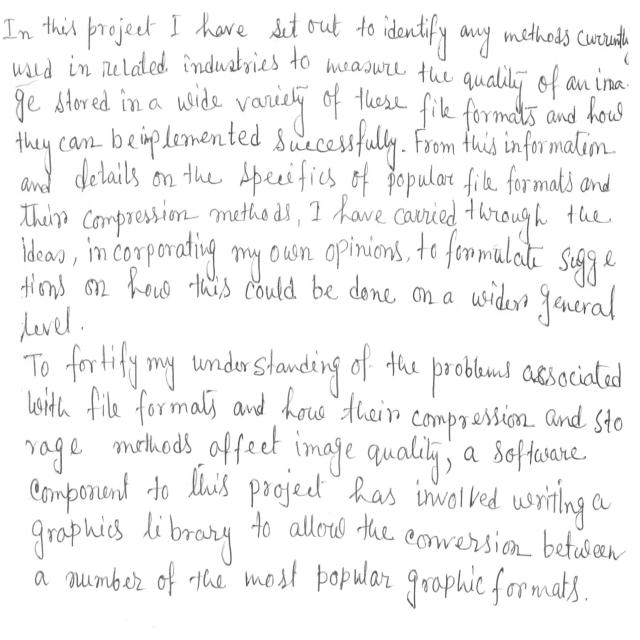 In this project I have set out to identify any methods currently
used in related industries to measure the quality of an ima
ge stored in a wide variety of these file formats and how
they can be implemented successfully. From this information
and details on the specifics of popular file formats and
their compression methods, I have carried through the
ideas, incorporating my own opinions, to formulate sugge
tions on how this could be done on a wider general
level.
To fortify my understanding of the problems associated
with file formats and how their compression and sto
rage methods affect image quality, a software
component to this project has involved writing a
graphics library to allow the conversion between
a number of the most popular graphic formats.